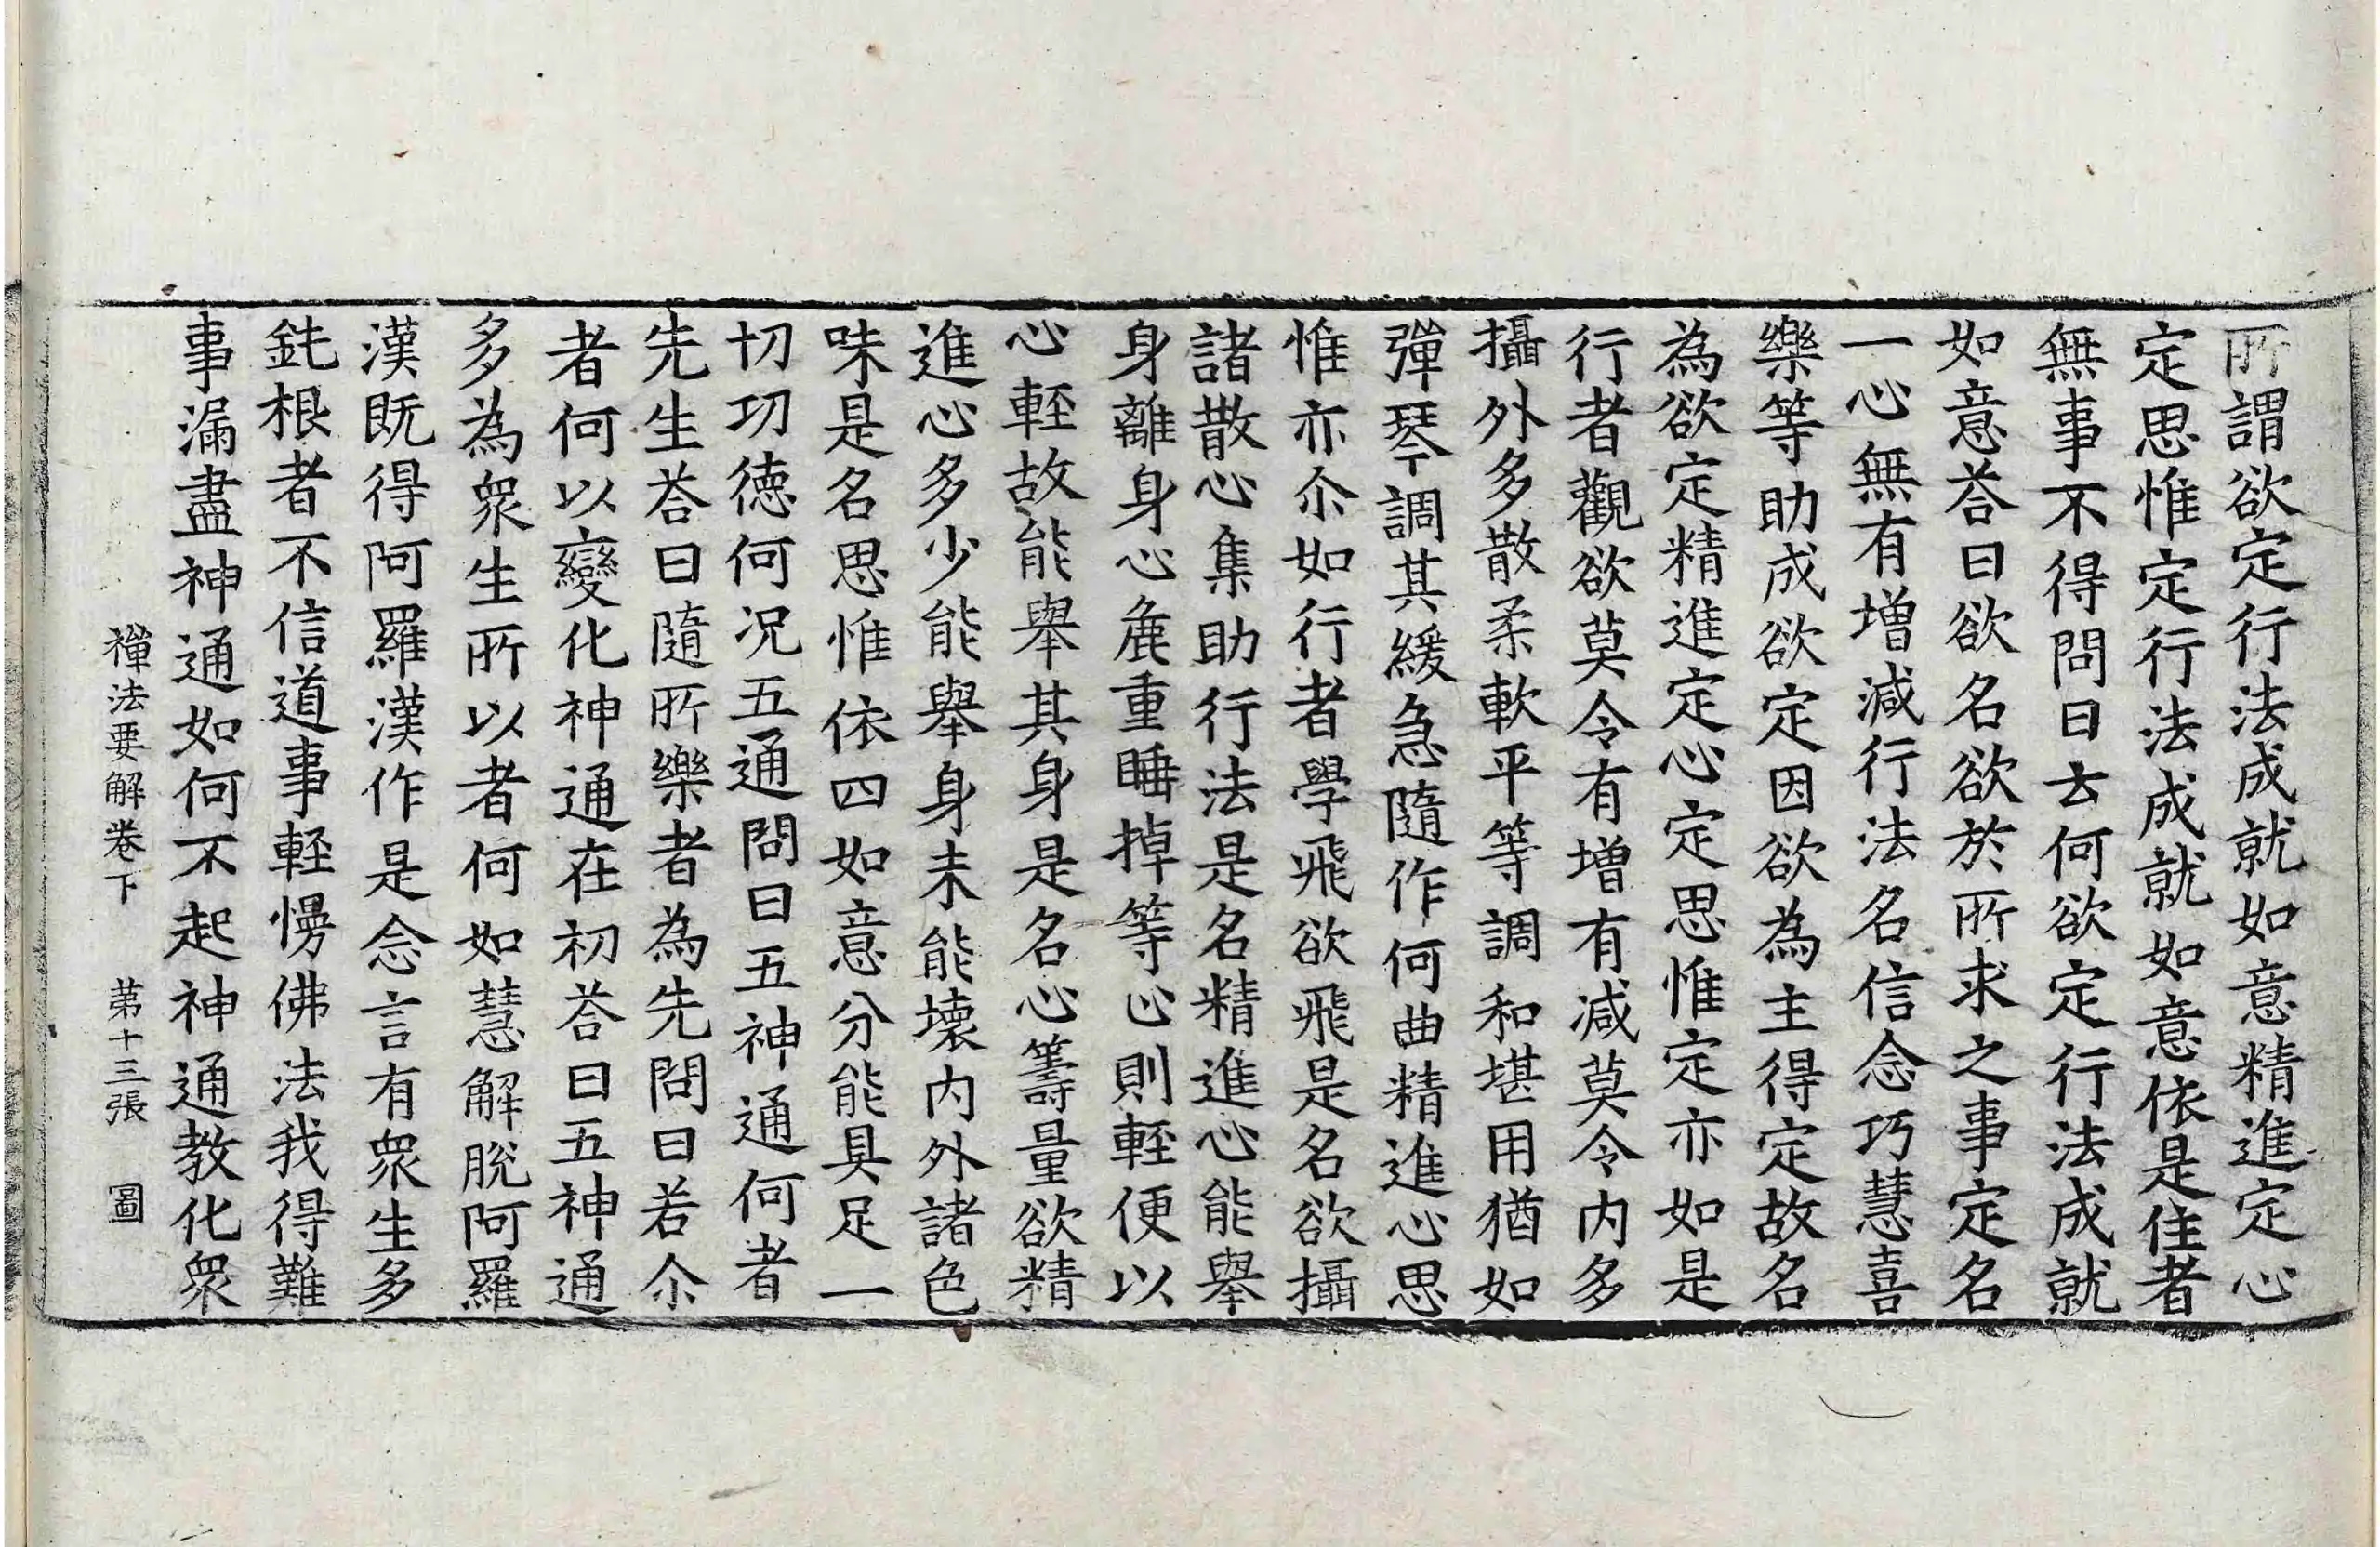 所謂欲定行法成就如意精進定心
定思惟定行法成就如意依是住者
無事不得問曰云何欲定行法成就
如意荅曰欲名欲於所求之事定名
一心無有增減行法名信念巧慧喜
樂等助成欲定因欲為主得定故名
為欲定精進定心定思惟定亦如是
行者觀欲莫令有增有減莫令內多
攝外多散柔軟平等調和堪用猶如
彈琴調其緩急隨作何曲精進心思
惟亦尒如行者學飛欲飛是名欲攝
諸散心集助行法是名精進心能舉
身離身心麁重睡掉等心則輕便以
心輕故能舉其身是名心籌量欲精
進心多少能舉身未能壞內外諸色
味是名思惟依四如意分能具足一
切功德何況五通問曰五神通何者
先生荅曰隨所樂者為先問曰若尒
者何以變化神通在初荅曰五神通
多為眾生所以者何如慧解脫阿羅
漢既得阿羅漢作是念言有眾生多
鈍根者不信道事輕慢佛法我得難
事漏盡神通如何不起神通教化眾
禪法要解卷下 第十三張 圖